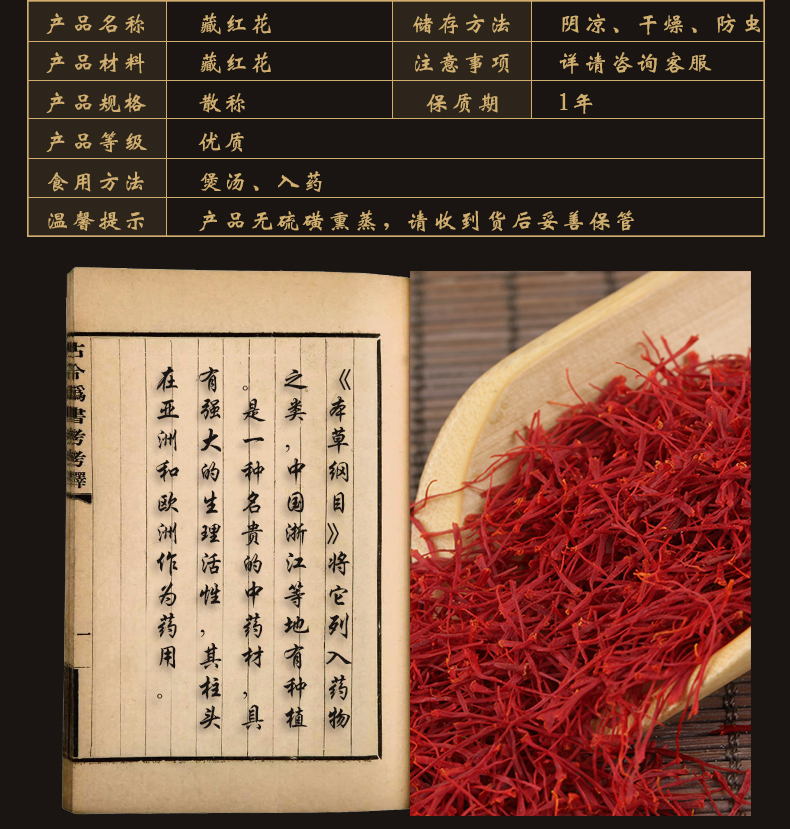 产品名称 藏红花 储存方法 阴凉、干燥、防虫
产品材料 藏红花 注意事项 详请咨询客服
产品规格 散称 保质期 1年
产品等级 优质
食用方法 煲汤、入药
温馨提示 产品无硫磺熏蒸，请收到货后妥善保管
《本草纲目》将它列入药物
之类，中国浙江等地有种植
。是一种名贵的中药材，具
有强大的生理活性，其柱头
在亚洲和欧洲作为药用。
古今伪書考考釋
一